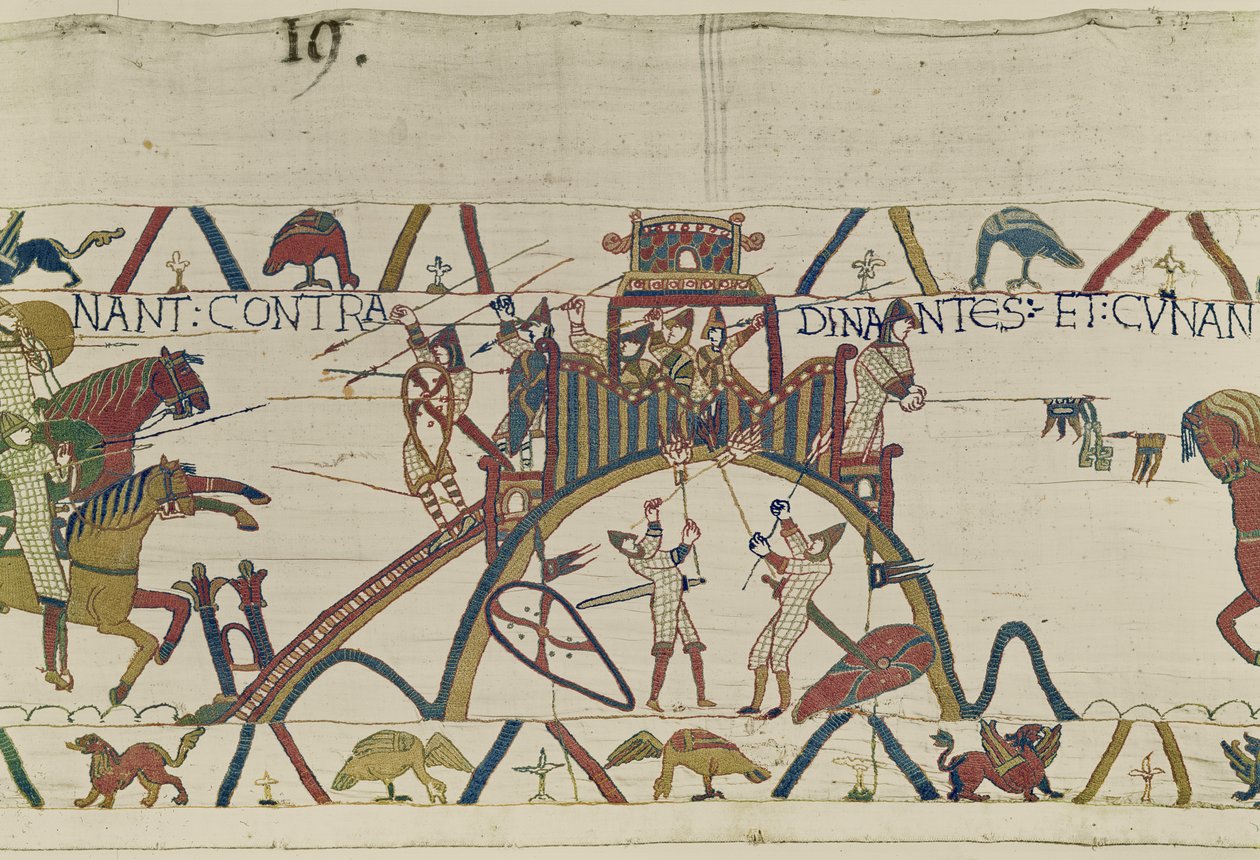 19.
NANT : CONTRA DINANTES : ET : CVNAN